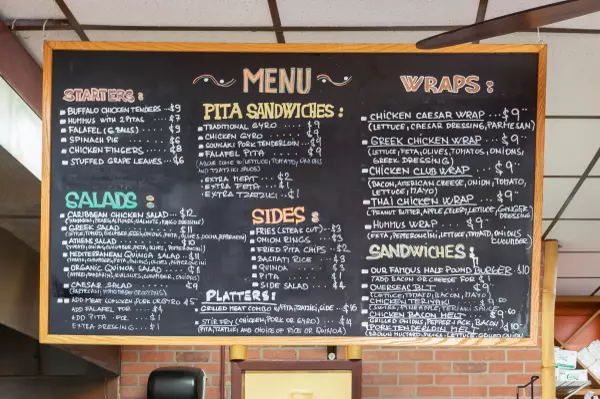 MENU
STARTERS:
BUFFALO CHICKEN TENDERS $9
HUMMUS WITH 2 PITAS $7
FALAFEL (6 BALLS) $9
SPINACH PIE $6
CHICKEN FINGERS $8
STUFFED GRAPE LEAVES $6
SALADS:
CARIBBEAN CHICKEN SALAD $12
GREEK SALAD $11
ATHENS SALAD $10
MEDITERRANEAN QUINOA SALAD $11
ORGANIC QUINOA SALAD $8
CAESAR SALAD $9
ADD MEAT (CHICKEN, PORK OR GYRO) $5
ADD FALAFEL FOR $4
ADD PITA FOR $1
EXTRA DRESSING $1
PITA SANDWICHES:
TRADITIONAL GYRO $9
CHICKEN GYRO $9
SOUVLAKI PORK TENDERLOIN $9
FALAFEL PITA $9
EXTRA MEAT $2
EXTRA FETA $1
EXTRA TZATZIKI $1
SIDES:
FRIES (STEAK CUT) $3
ONION RINGS $3
FRIED PITA CHIPS $2
BASMATI RICE $3
QUINOA $3
PITA $1
SIDE SALAD $4
PLATTERS:
GRILLED MEAT COMBO W/PITA, TZATZIKI, SIDE $16
STIR FRY (CHICKEN, PORK OR GYRO) $14
(PITA, TZATZIKI AND CHOICE OF RICE OR QUINOA)
WRAPS:
CHICKEN CAESAR WRAP $9
(LETTUCE, CAESAR DRESSING, PARMESAN)
GREEK CHICKEN WRAP $9
(LETTUCE, FETA, OLIVES, TOMATOS, ONIONS,
GREEK DRESSING)
CHICKEN CLUB WRAP $9
(BACON, AMERICAN CHEESE, ONION, TOMATO,
LETTUCE, MAYO)
THAI CHICKEN WRAP $9
(PEANUT BUTTER, APPLE, CELERY, LETTUCE, GINGER DRESSING)
HUMMUS WRAP $9
(FETA, PEPPERONCINI, LETTUCE, TOMATO, ONIONS,
CUCUMBER)
SANDWICHES:
OUR FAMOUS HALF POUND BURGER $10
*ADD BACON OR CHEESE FOR $1
OVERSEAS BLT $9
(LETTUCE, TOMATO, BACON, MAYO)
CHICKEN TERIYAKI
CHICKEN BACON MELT
GRILLED ONIONS, PEPPERJACK, BACON
PORK TENDERLOIN MELT $10